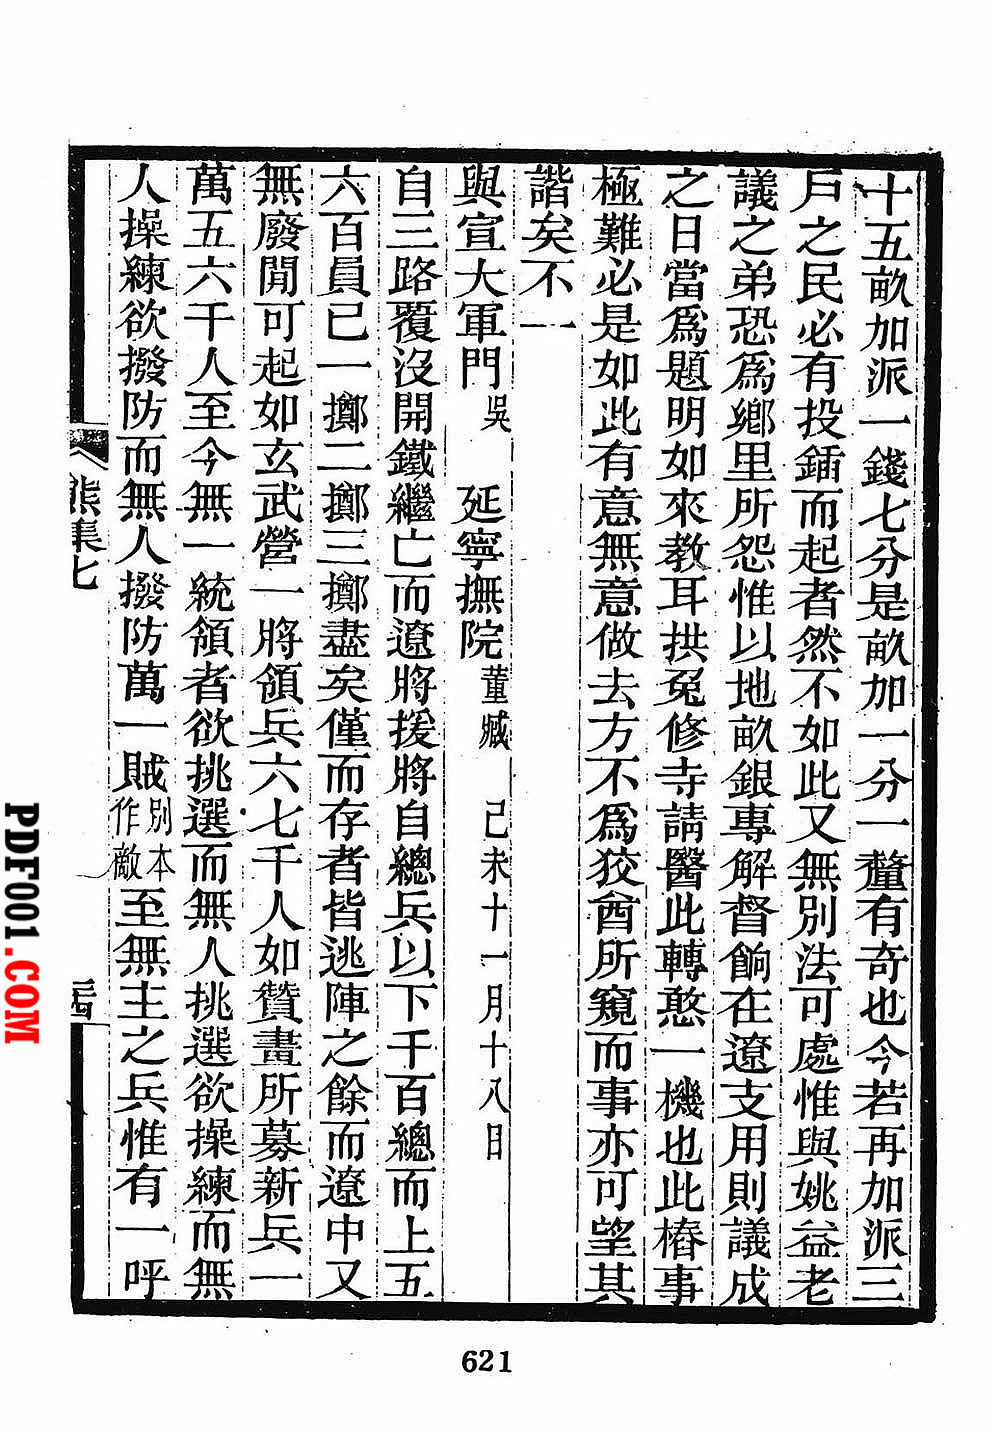 十五畝加派一錢七分是畝加一分一釐有奇也今若再加派三
戶之民必有投鍤而起者然不如此又無別法可處惟與姚益老
議之弟恐爲鄉里所怨惟以地畝銀專解督餉在遼支用則議成
之日當爲題明如來教耳拱兔修寺請醫此轉憨一機也此樁事
極難必是如此有意無意做去方不爲狡酋所窺而事亦可望其
諧矣不一
與宣大軍門吳　延寧撫院董臧　己未十一月十八日
自三路覆沒開鐵繼亡而遼將援將自總兵以下千百總而上五
六百員已一擲二擲三擲盡矣僅而存者皆逃陣之餘而遼中又
無廢閒可起如玄武營一將領兵六七千人如贊畫所募新兵一
萬五六千人至今無一統領者欲挑選而無人挑選欲操練而無
人操練欲撥防而無人撥防萬一賊別本作敵至無主之兵惟有一呼
熊集七
二四
621
PDF001.COM